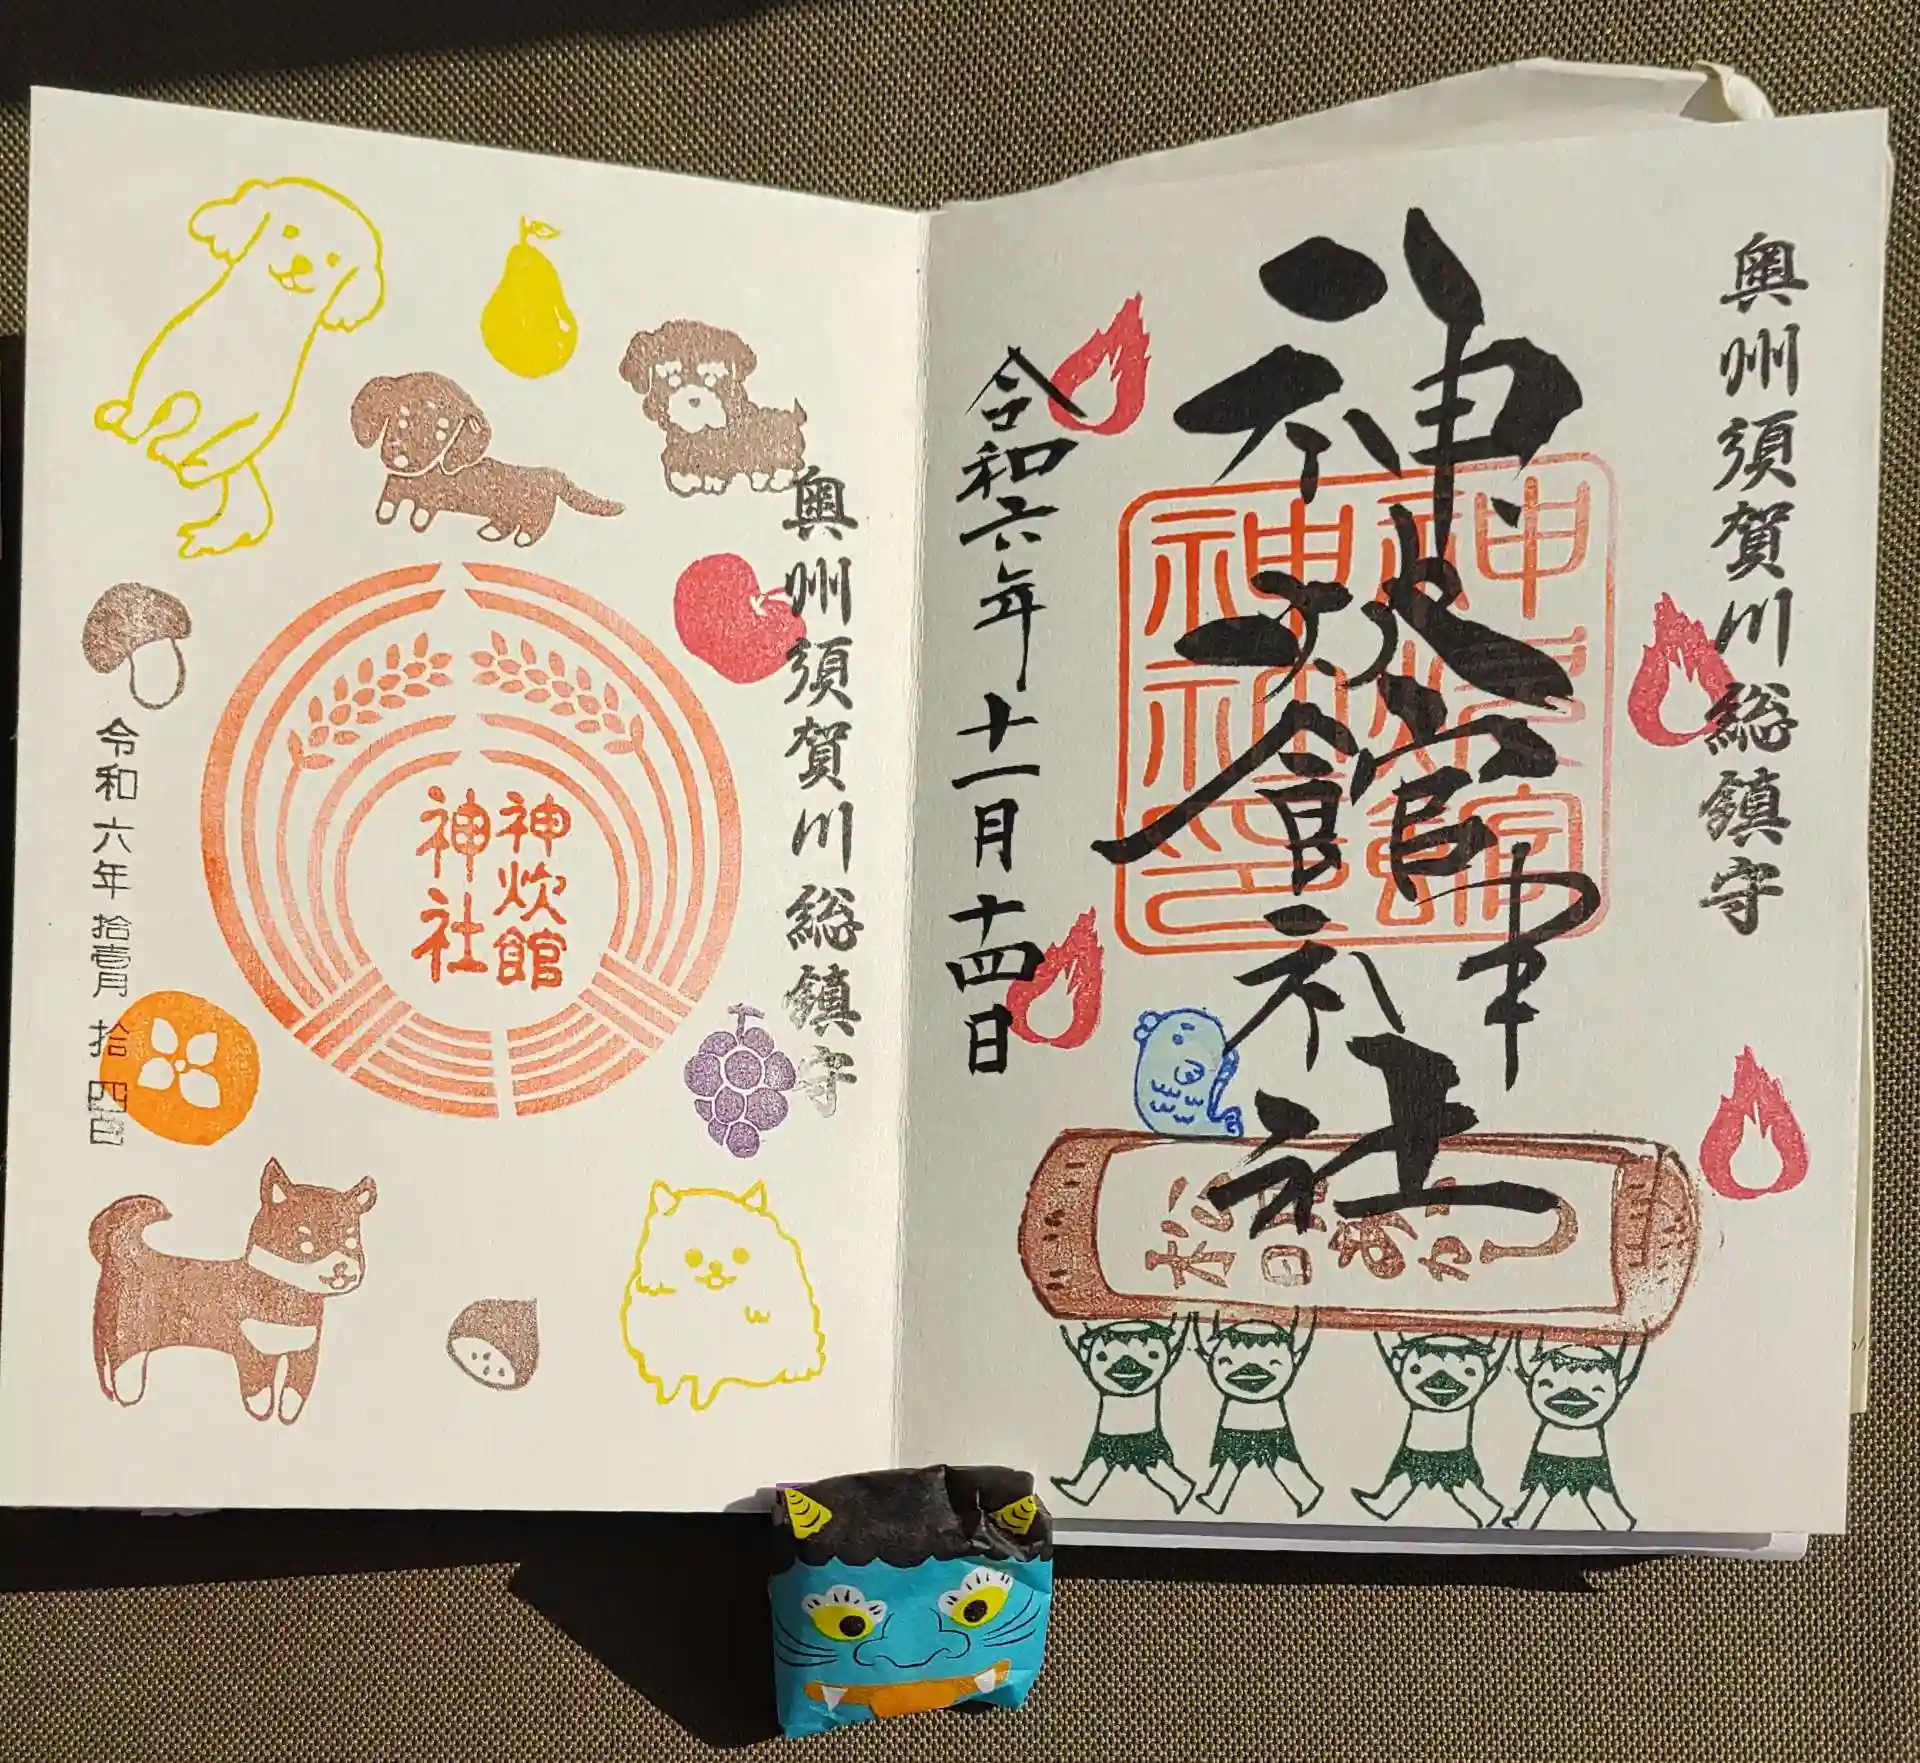 奥州須賀川総鎮守
神炊館神社
令和六年十一月十四日
松明あかし
奥州須賀川総鎮守
神炊館
神社
令和六年拾壱月拾四日